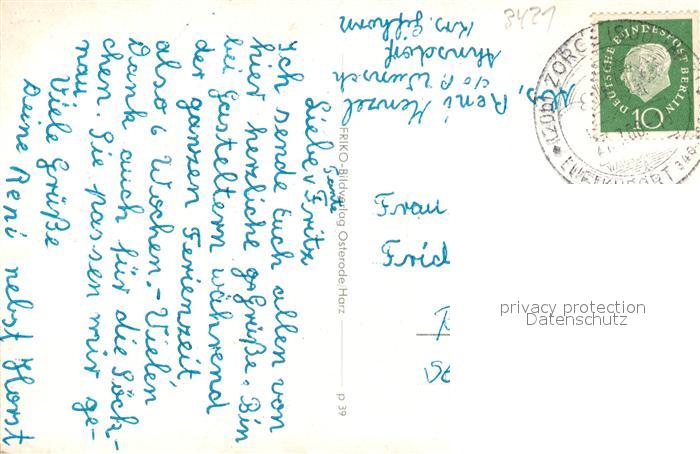 8421
Abs. Reni Menzel
c/o P. Wunsch
Ahnsdorf
Krs. Gifhorn
Liebe Tante v Fritz
Ich sende Euch allen von
hier herzliche Grüße. Bin
bei Gasteltern während
der ganzen Ferienzeit
also 6 Wochen. - Vielen
Dank auch für die Söck-
chen. Sie passen mir ge-
nau.
Viele Grüße
Deine Reni nebst Horst
FRIKO-Bildverlag Osterode/Harz
p 39
Frau
Fried
DEUTSCHE BUNDESPOST BERLIN
10
ZORGE (SÜDHARZ)
LUFTKURORT 340
privacy protection
Datenschutz